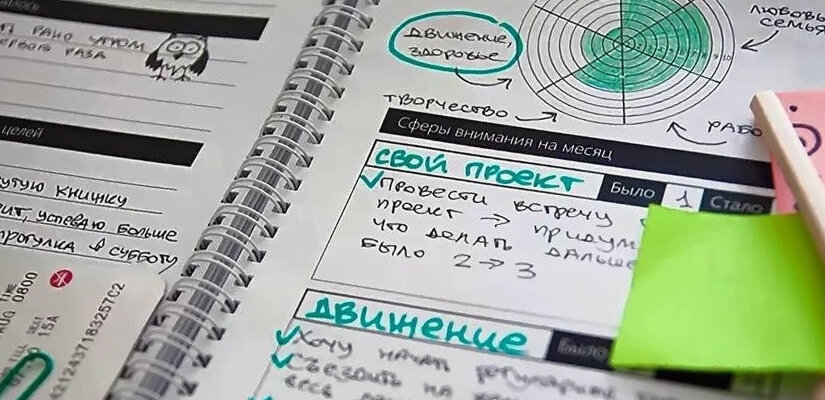 рано утром
первого раза
целей
книжку
успеваю больше
прогулка в субботу
0800
15A
4212437183257C2
Движение,
здоровье
Творчество
Любовь
семья
Сферы внимания на месяц
Свой проект
Было 1 Стало
Провести встречу
проект → придум
что делать дальше
было 2 → 3
Движение
Было
Хочу начать регулярные
Съездить на